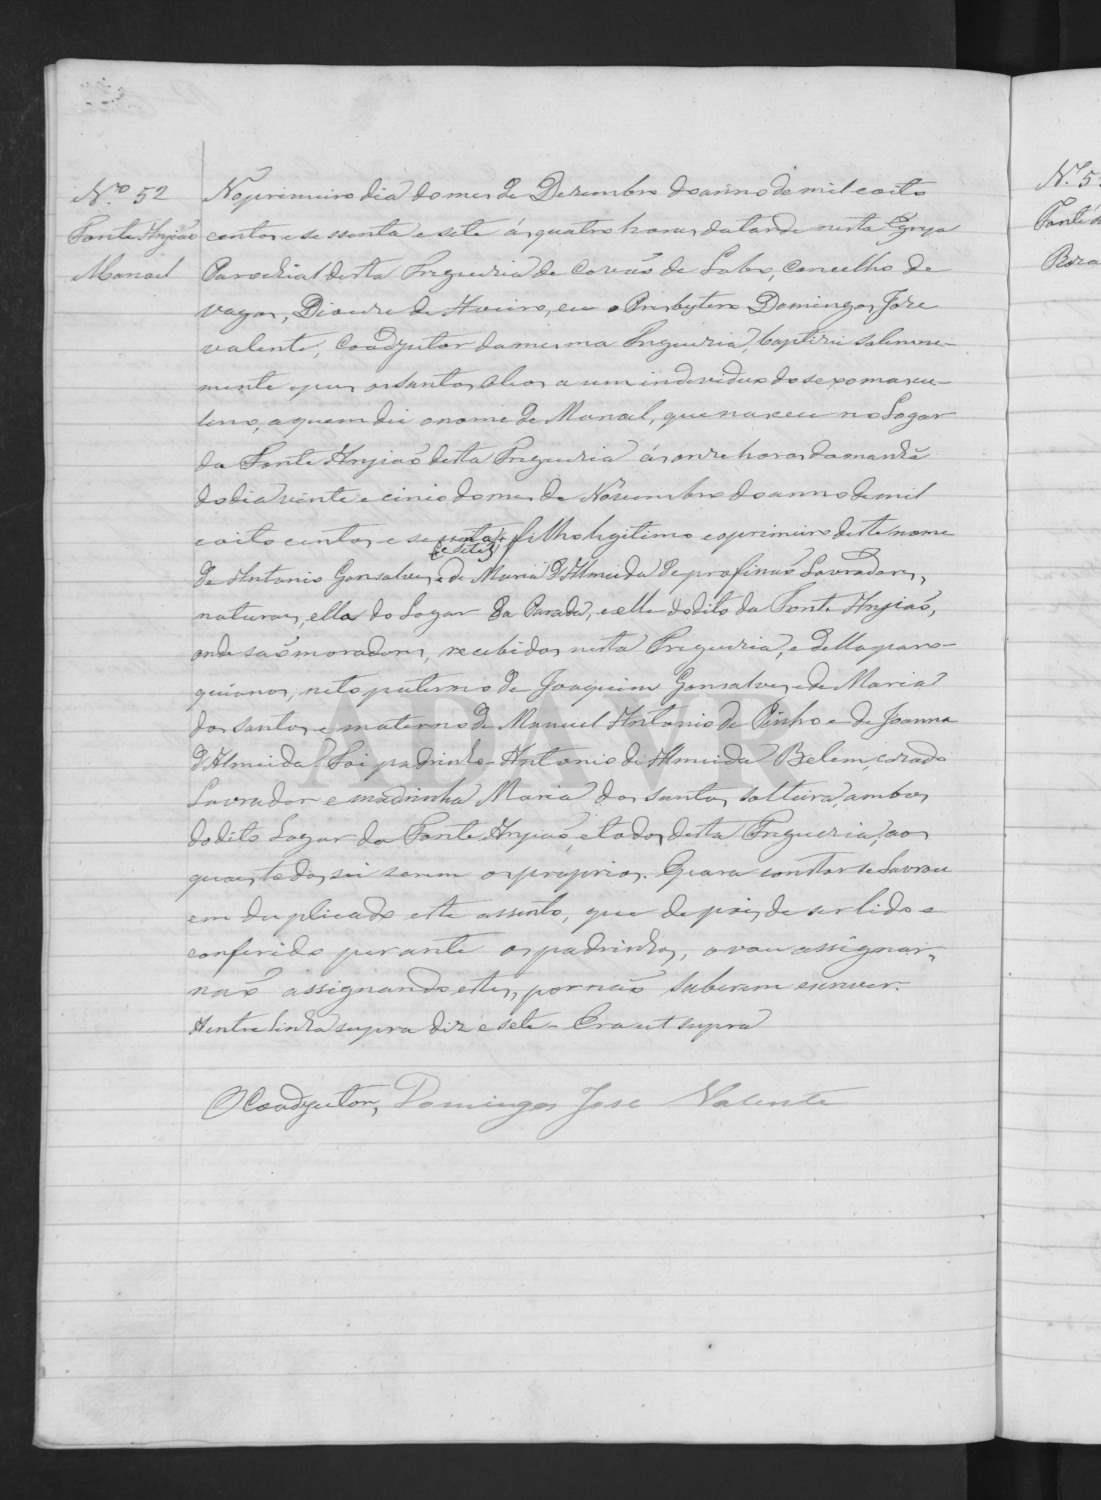 N.º 52
Fonte Anjiaõ
Manoel
No primeiro dia do mes de Dezembro do anno de mil e oito
centos e sessenta e sete ás quatro horas da tarde nesta Egreja
Parochial desta Freguezia de Covaõ do Lobo, Concelho de
Vagos, Diocese de Aveiro, eu o Presbytero Domingos Jose
Valente, Coadjutor da mesma Freguezia, baptizei solemne-
mente e pus os santos oleos a um individuo do sexo mascu-
lino, a quem dei o nome de Manoel, que nasceu no Logar
da Fonte Anjiaõ desta Freguezia ás onze horas da manhã
do dia vinte e cinco do mes de Novembro do anno de mil
e oito centos e sessenta (e sete) filho legitimo e o primeiro deste nome
de Antonio Gonsalves e de Maria d'Almeida de profissaõ Lavradores,
naturaes, ella do Logar da Parada, e elle do dito da Fonte Anjiaõ,
onde saõ moradores, recebidos nesta Freguezia, e della paro-
quianos, neto paterno de Joaquim Gonsalves e de Maria
dos Santos e materno de Manuel Antonio de Pinho e de Joanna
d'Almeida. Foi padrinho Antonio de Almeida Belem, cazado
Lavrador e madrinha Maria dos Santos, solteira, ambos
do dito Logar da Fonte Anjiaõ, e todos desta Freguezia, aos
quaes todos sei serem os proprios. E para constar se lavrou
em duplicado este assento, que depois de ser lido e
conferido perante os padrinhos, o vou assignar,
naõ assignando estes, por naõ saberem escrever.
A entrelinha supra diz e sete - Era ut supra
O Coadjutor, Domingos Jose Valente
N.º 5
Fonte A
Roza
ADAVR